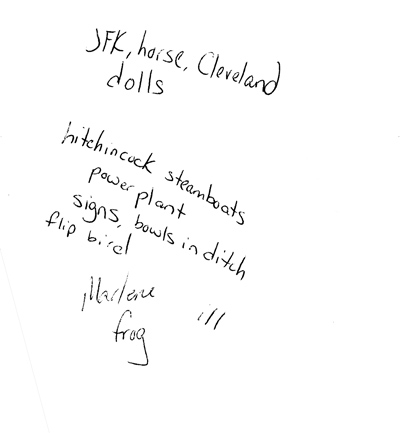 JFK, horse, Cleveland
dolls
hitchincock steamboats
power plant
signs, bowls in ditch
flip bird
Marlene ill
frog